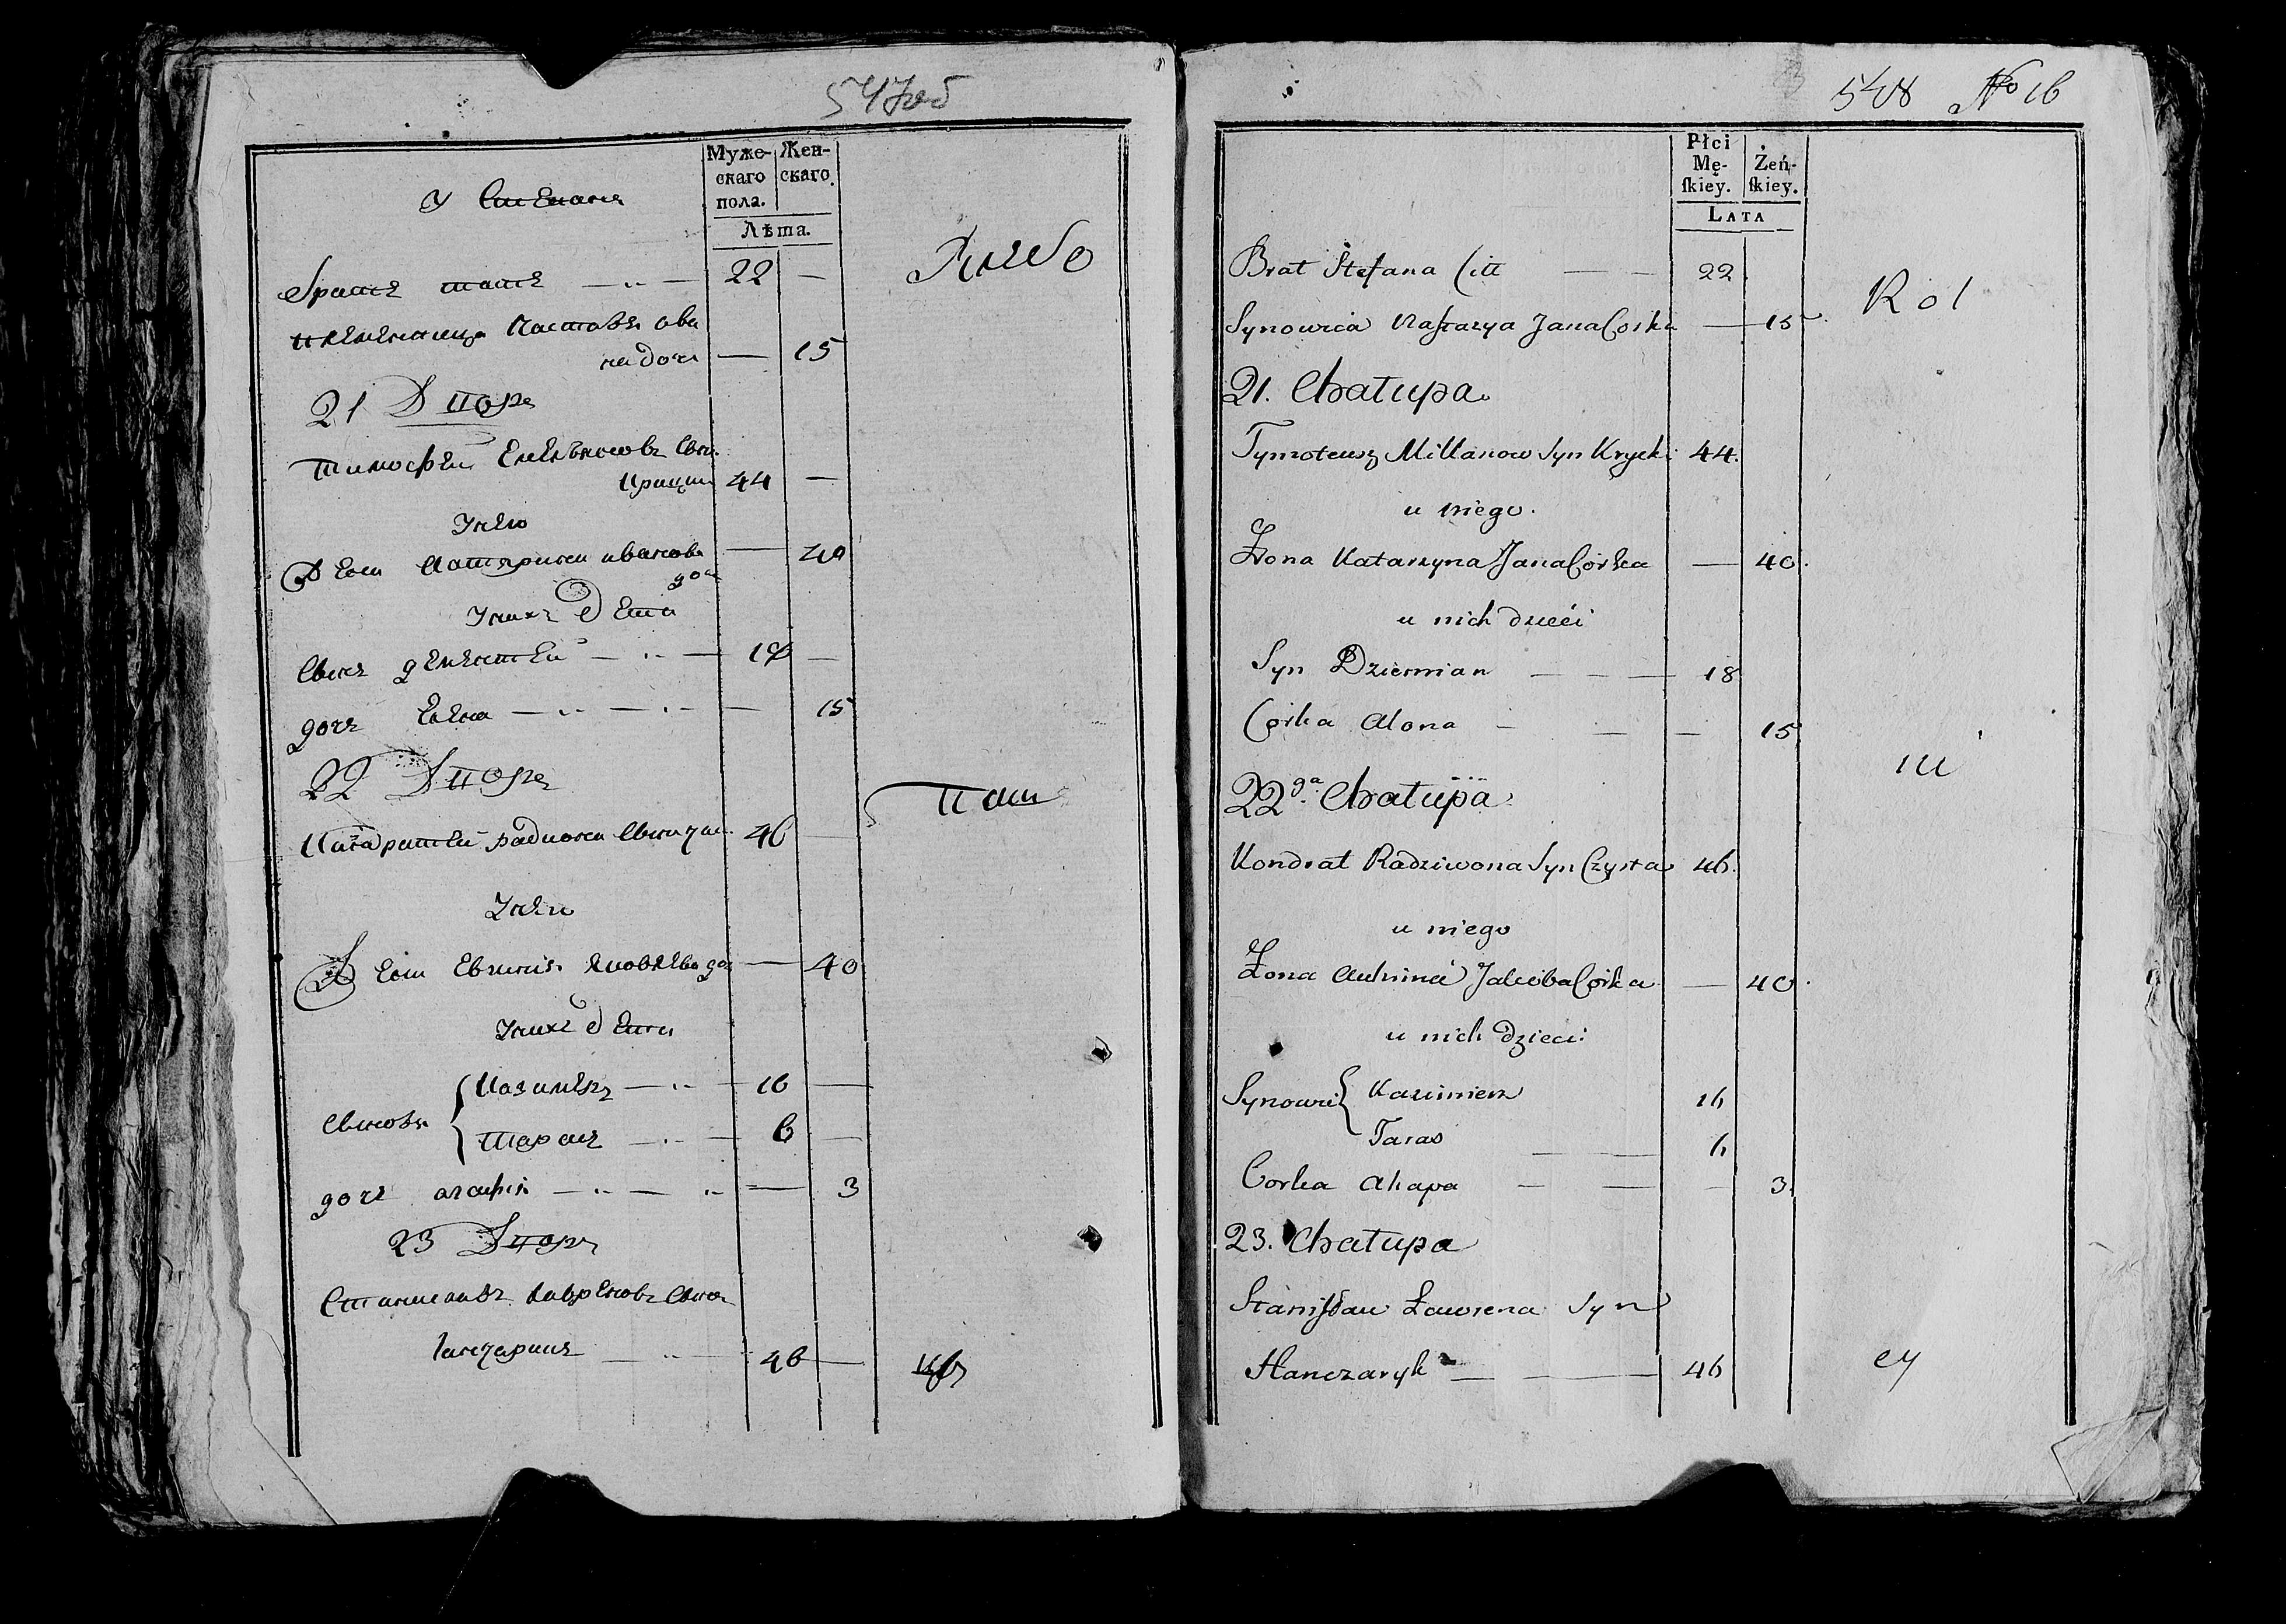 547 об
Муже-
скаго
пола.
Жен-
скаго.
Лѣта.
У Степана
братъ титъ 22
племяница Настасья ива
на дочь 15
21 Дворъ
Тимофей Емельяновъ сынъ
Крицки 44
У него
Жена Катярина иванова
доч 40
У нихъ дети
Сынъ дементей 18
дочь Елена 15
22 Дворъ
Кандратей радиона сынъ 46
У него
Жена Евгения яковлева доч 40
У нихъ дети
Сыновья
Казимеръ 16
Тарасъ 6
дочь агапия 3
23 Дворъ
Станиславъ лавреновъ сынъ
Ганчарикъ 46
Хлебо
паш
цы
548 No 16
Płci
Mę-
ſkiey.
Żeń-
ſkiey.
LATA
Brat Stefana Citt 22
Synowica Nastazya Jana Corka 15
21. Chałupa
Tymoteusz Millanow Syn Krycki 44.
u niego.
Żona Katarzyna Jana Corka 40.
u nich dzieci
Syn Dziemian 18
Corka Alona 15
22ga Chałupa
Kondrat Radziwona Syn Czysta 46.
u niego
Żona Auhinia Jakuba Corka 40.
u nich dzieci:
Synowie
Kazimierz 16
Taras 6
Corka Ahapa 3
23. Chałupa
Stanisław Ławrena Syn
Hanczaryk 46
Rol
ni
cy